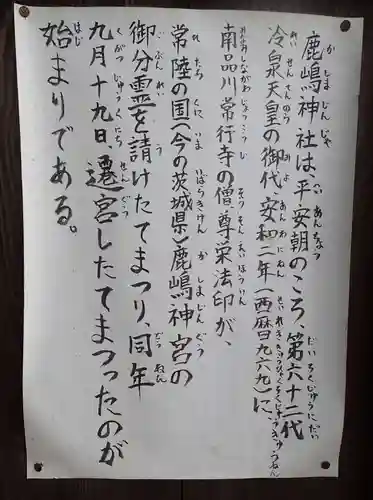 鹿嶋神社は平安朝のころ、第六十二代
冷泉天皇の御代、安和二年(西暦九六九)に、
南品川常行寺の僧尊栄法印が、
常陸の国(今の茨城県)鹿嶋神宮の
御分霊を請けたてまつり、同年
九月十九日、遷宮したてまつったのが
始まりである。